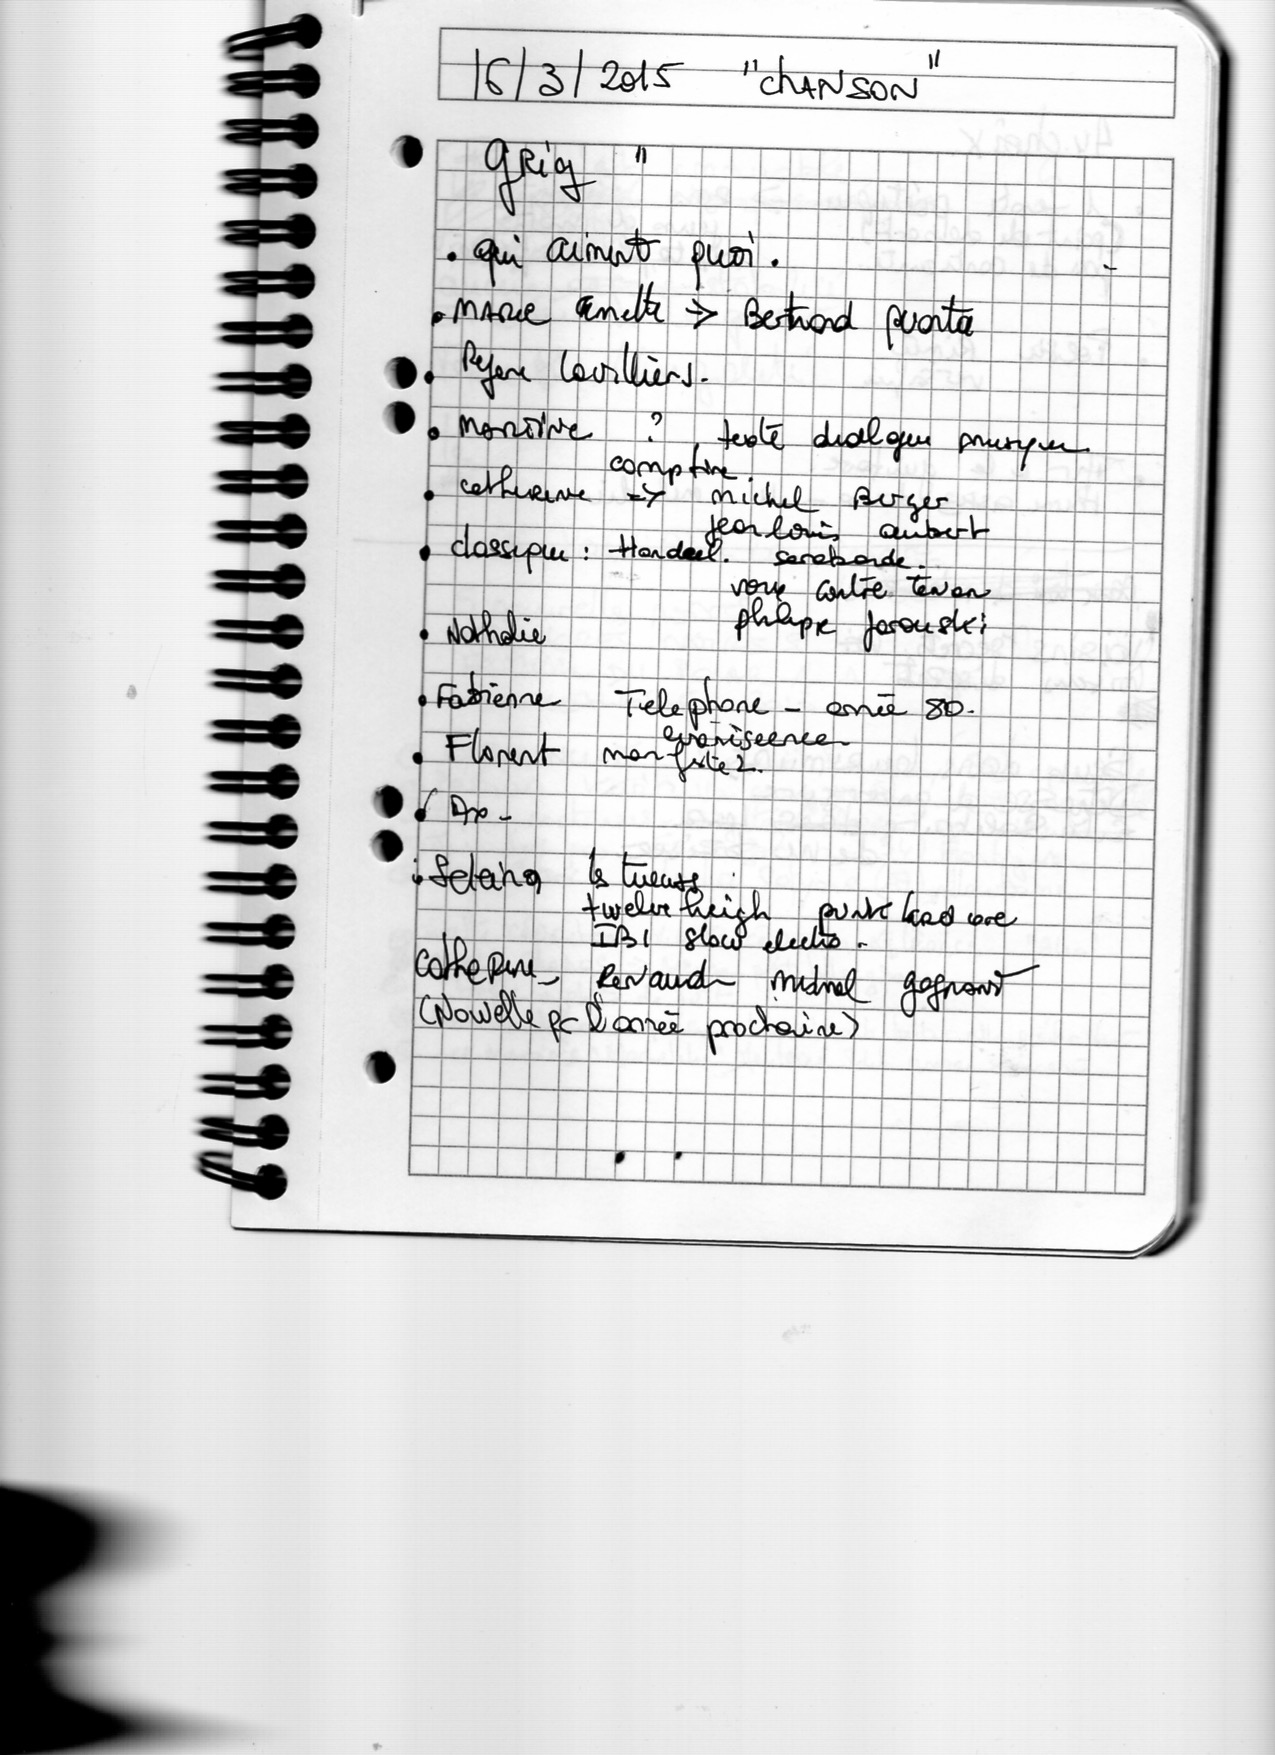 16/3/2015 "CHANSON"
"
. qui aiment quoi.
. MARIE →> Bertrand
. Lavilliers.
. Martine ? , texte dialogue musique
comptine.
. Catherine -> Michel Berger
jean louis aubert
. classique : Handel. sarabande.
voix contre tenor
philippe jarouski
. Nathalie
. Fabienne Telephone - année 80.
. Florent
.
: les tueurs
twelve heigh punk hard core
IBI slow electro.
Catherine - Renaud mistral gagnant
(Nouvelle pr l'année prochaine)